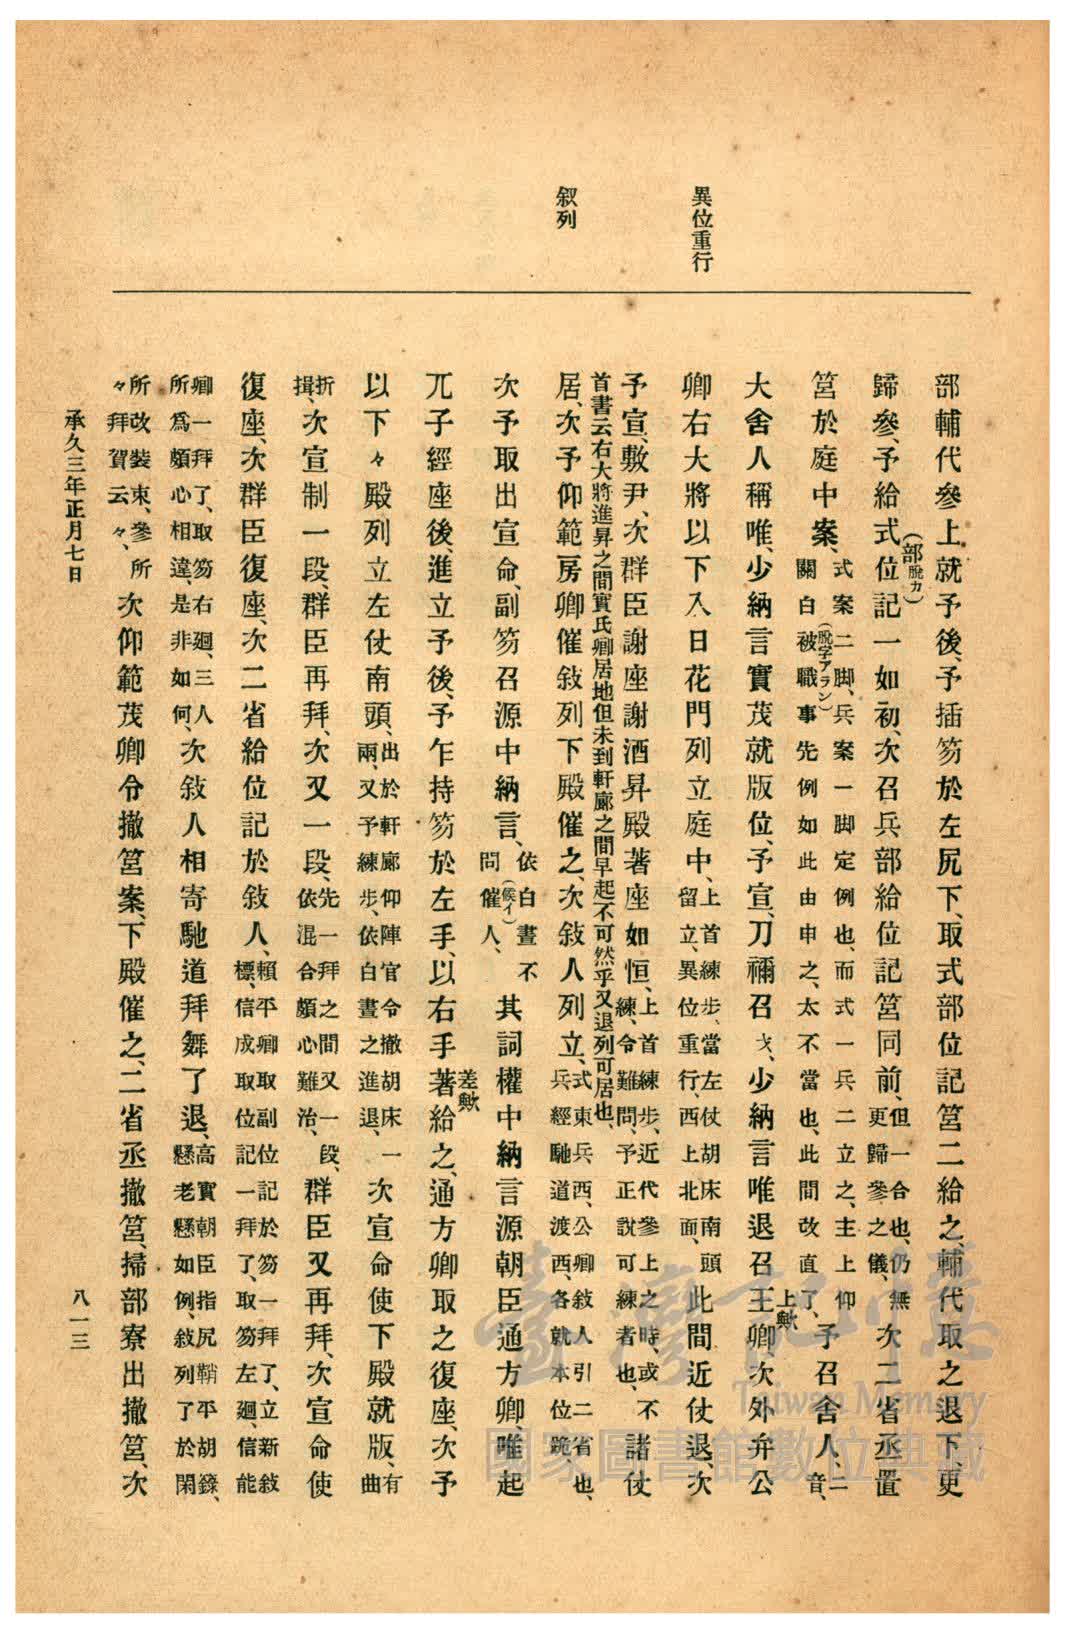 異位重行
叙列
部輔代參上就予後、予插笏於左尻下、取式部位記筥二給之、輔代取之退下、更
歸參、予給式(部脫カ)位記一如初、次召兵部給位記筥同前、但一合也、仍無更歸參之儀、次二省丞置
筥於庭中案、式案二脚、兵案一脚定例也、而式一兵二立之、主上仰關白被(脫字アラン)職事先例如此由申之、太不當也、此間改直了、予召舍人、二音、
大舍人稱唯、少納言實茂就版位、予宣、刀禰召戈、少納言唯退召王(上歟)卿、次外弁公
卿右大將以下入日花門列立庭中、上首練步、當左仗胡床南頭留立、異位重行、西上北面、此間近仗退、次
予宣、敷尹、次群臣謝座謝酒昇殿著座如恒、上首練步、近代參上之時、或不練、令難問、予正說可練者也、諸仗
首書云右大將進昇之間實氏卿居地但未到軒廊之間早起不可然乎又退列可居也、
居、次予仰範房卿催敍列下殿催之、次敍人列立、式東兵西、公卿敍人引二省也、兵經馳道渡西、各就本位跪、
次予取出宣命、副笏召源中納言、依白晝不問催(候イ)人、其詞權中納言源朝臣通方卿、唯起
兀子經座後、進立予後、予乍持笏於左手、以右手著(差歟)給之、通方卿取之復座、次予
以下々殿列立左仗南頭、出於軒廊仰陣官令撤胡床一兩、又予練步、依白晝之進退、次宣命使下殿就版、有曲
折揖、次宣制一段、群臣再拜、次又一段、先一拜之間又一段、依混合頗心難治、群臣又再拜、次宣命使
復座、次群臣復座、次二省給位記於敍人、賴平卿取副位記於笏一拜了、立新敍標、信成取位記一拜了、取笏左廻、信能
卿一拜了、取笏右廻、三人所爲頗心相違、是非如何、次敍人相寄馳道拜舞了退、高實朝臣指尻鞘平胡籙、懸老懸如例、敍列了於閑
所改裝束、參所々拜賀云々、次仰範茂卿令撤筥案、下殿催之、二省丞撤筥、掃部寮出撤筥、次
承久三年正月七日
八一三
臺灣記憶
Taiwan Memory
國家圖書館數位典藏